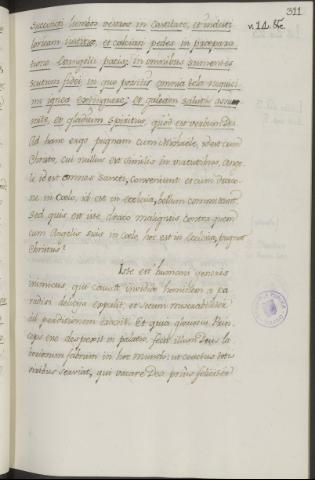 311
v. 14. &c.
succincti lumbos vestros in caritate, et induti
loricam iustitiæ, et calceati pedes in præpara
tione Evangelii pacis; in omnibus sumentes
scutum fidei, in quo possitis omnia tela nequissi
mi ignea extinguere; et galeam salutis assu
mite, et gladium spiritus, quod est verbum Dei.
Ad hanc ergo pugnam cum Michaële, id est cum
Christo, cui nullus est similis in virtutibus, Ange
li, id est omnes sancti, conveniunt, et cum draco
ne in coelo, id est in Ecclesia, bellum committunt
sed quis est iste draco malignus contra quem
cum Angelis suis in coelo, hoc est in Ecclesia, pugnat
Christus?
Iste est humani generis
inimicus, qui causa invidiæ hominem a pa
radisi deliciis expulit, et secum miserabiliter
ad perditionem
Et quia Prin
ceps esse despexit in palatio, fecit illum Deus la
fabrum in hoc mundo: ut coactus
servat, qui vacare Deo prius feliciter